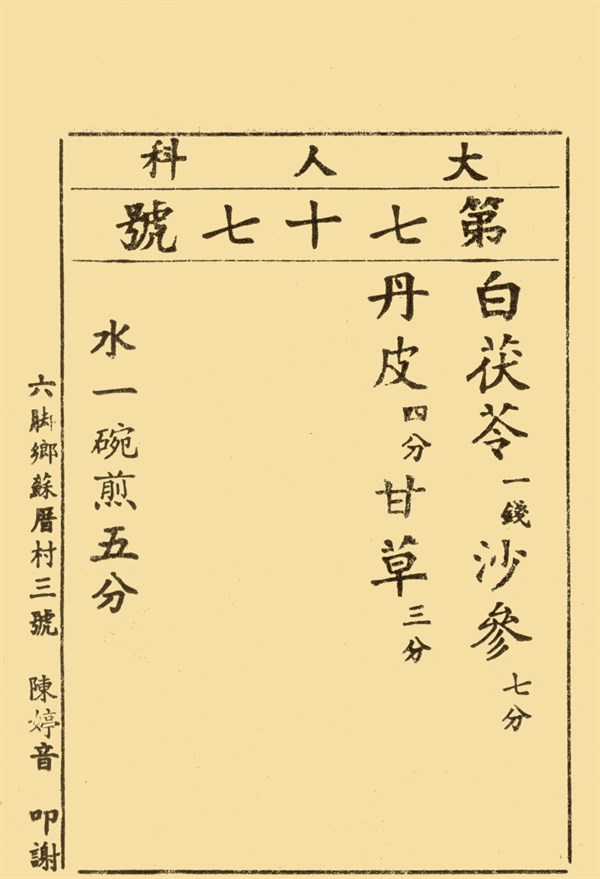 大人科
第七十七號
白茯苓一錢沙參七分
丹皮四分甘草三分
水一碗煎五分
六脚鄉蘇厝村三號　陳婷音　叩謝